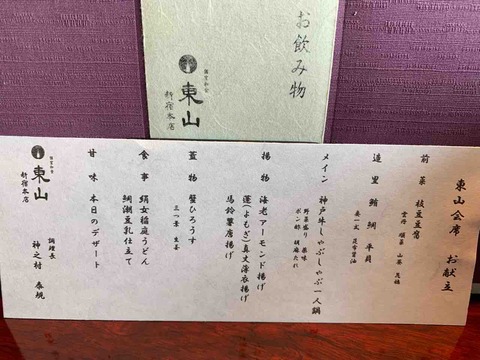 お飲み物
個室和食
東山
新宿本店
東山会席 お献立
前菜 枝豆豆腐
雲丹 順菜 山葵 茂椎
造里 鮪 鯛 平貝
妻一式 昆布醤油
メイン 神戸牛しゃぶしゃぶ一人鍋
野菜盛り 薬味
ポン酢 胡麻たれ
揚物 海老アーモンド揚げ
蓬(よもぎ)真丈薄衣揚げ
馬鈴薯唐揚げ
蓋物 蟹ひろうす
三つ葉 生姜
食事 絹女稲庭うどん
鯛潮豆乳仕立て
甘味 本日のデザート
個室和食
東山
新宿本店
調理長
神之村 泰規